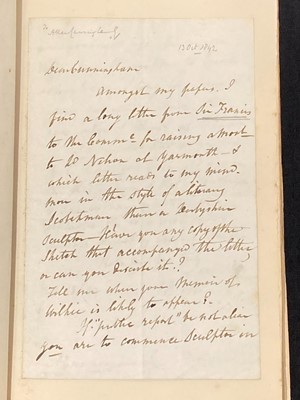 To Allan Cunningham Esq
13 Oct 1842
Dear Cunningham
Amongst my papers I
find a long letter from Sir Francis
to the Commee for raising a Mont
to Ld Nelson at Yarmouth – &
which letter reads to my mind
more in the style of a literary
Scotchman than a Derbyshire
Sculptor – Have you any copy of the
Sketch that accompanied the letter,
or can you describe it?
Tell me when your Memoir of
Wilkie is likely to appear?
If "public report" be not a liar
you are to commence Sculptor in